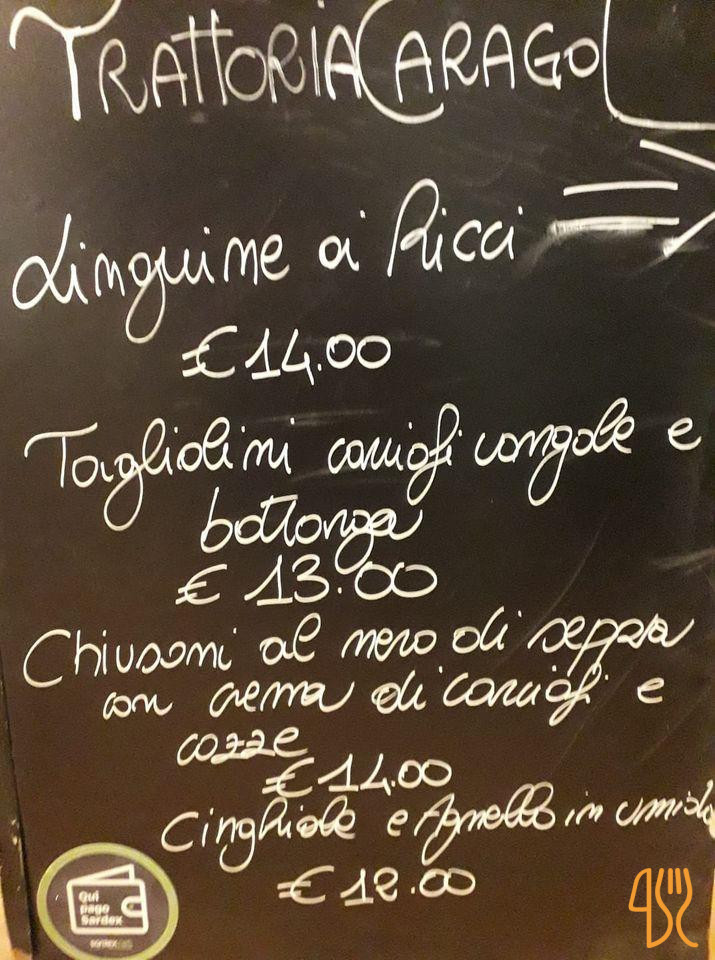 TRATTORIA CARAGOL
Linguine ai Ricci
€ 14.00
Tagliolini carciofi vongole e
bottarga
€ 13.00
Chiusoni al nero di seppia
con crema di carciofi e
cozze
€ 14.00
Cinghiale e Agnello in umido
€ 12.00
Qui
pago
Sardex